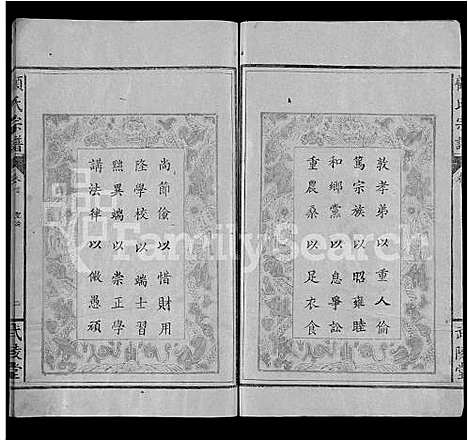 敦孝弟以重人倫
篤宗族以昭雍睦
和鄉黨以息爭訟
重農桑以足衣食
尚節儉以惜財用
隆學校以端士習
黜異端以崇正學
講法律以儆愚頑
顧氏宗譜
武陵堂
氏宗譜
武陵堂
FamilySearch